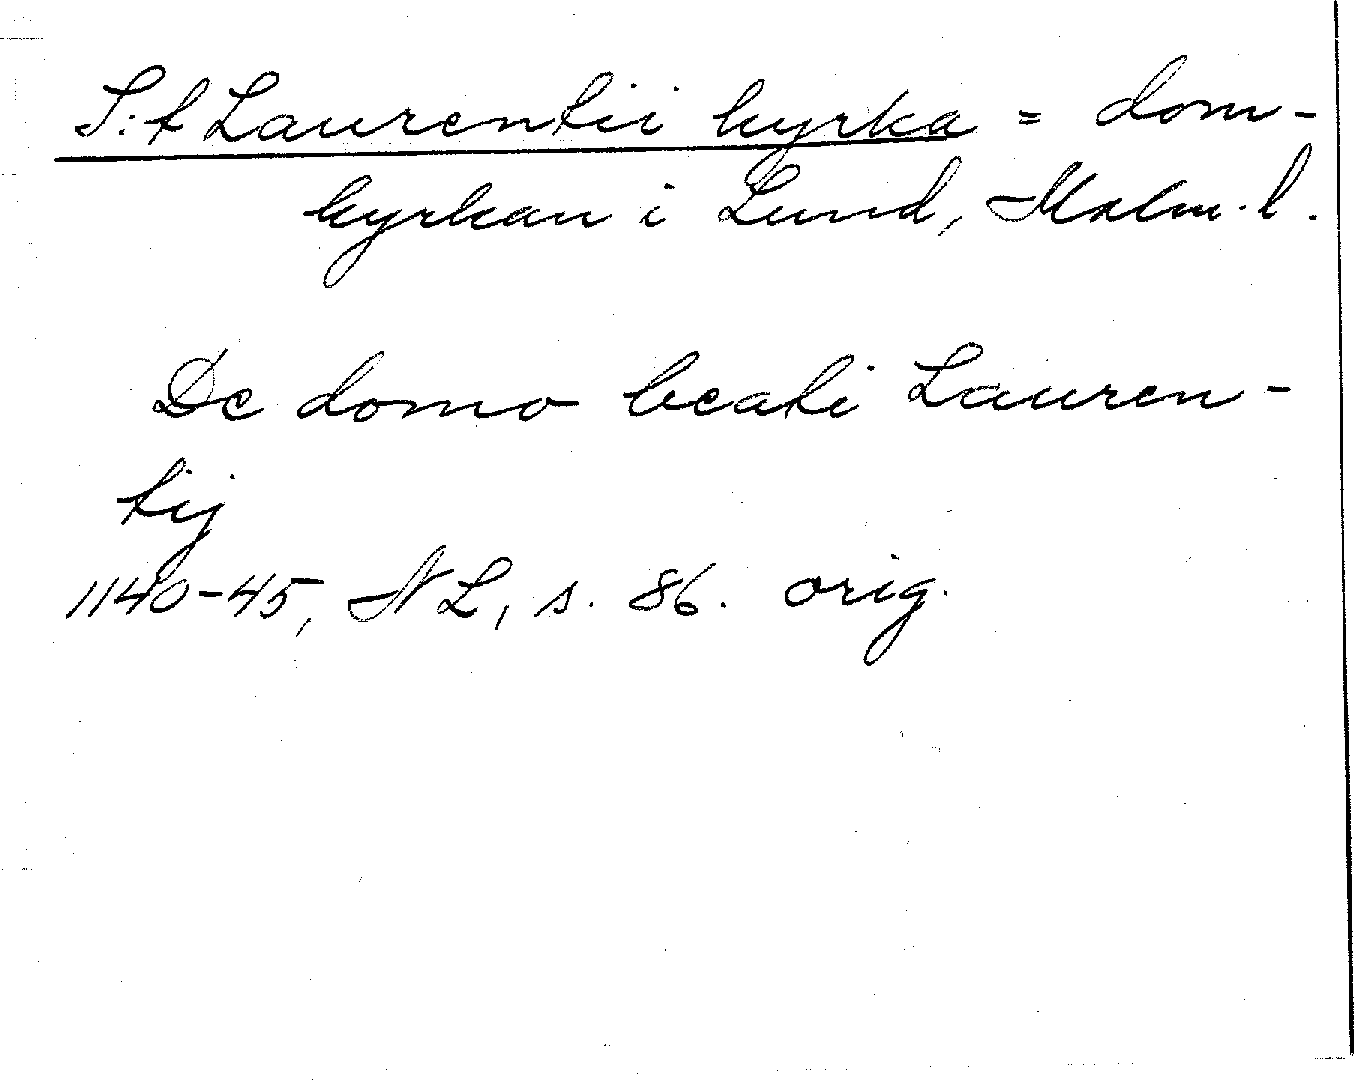 S:t Laurentii kyrka = dom-
kyrkan i Lund, Malm. l.
De domo beati Lauren-
tij
1140-45, NL, s. 86. orig.